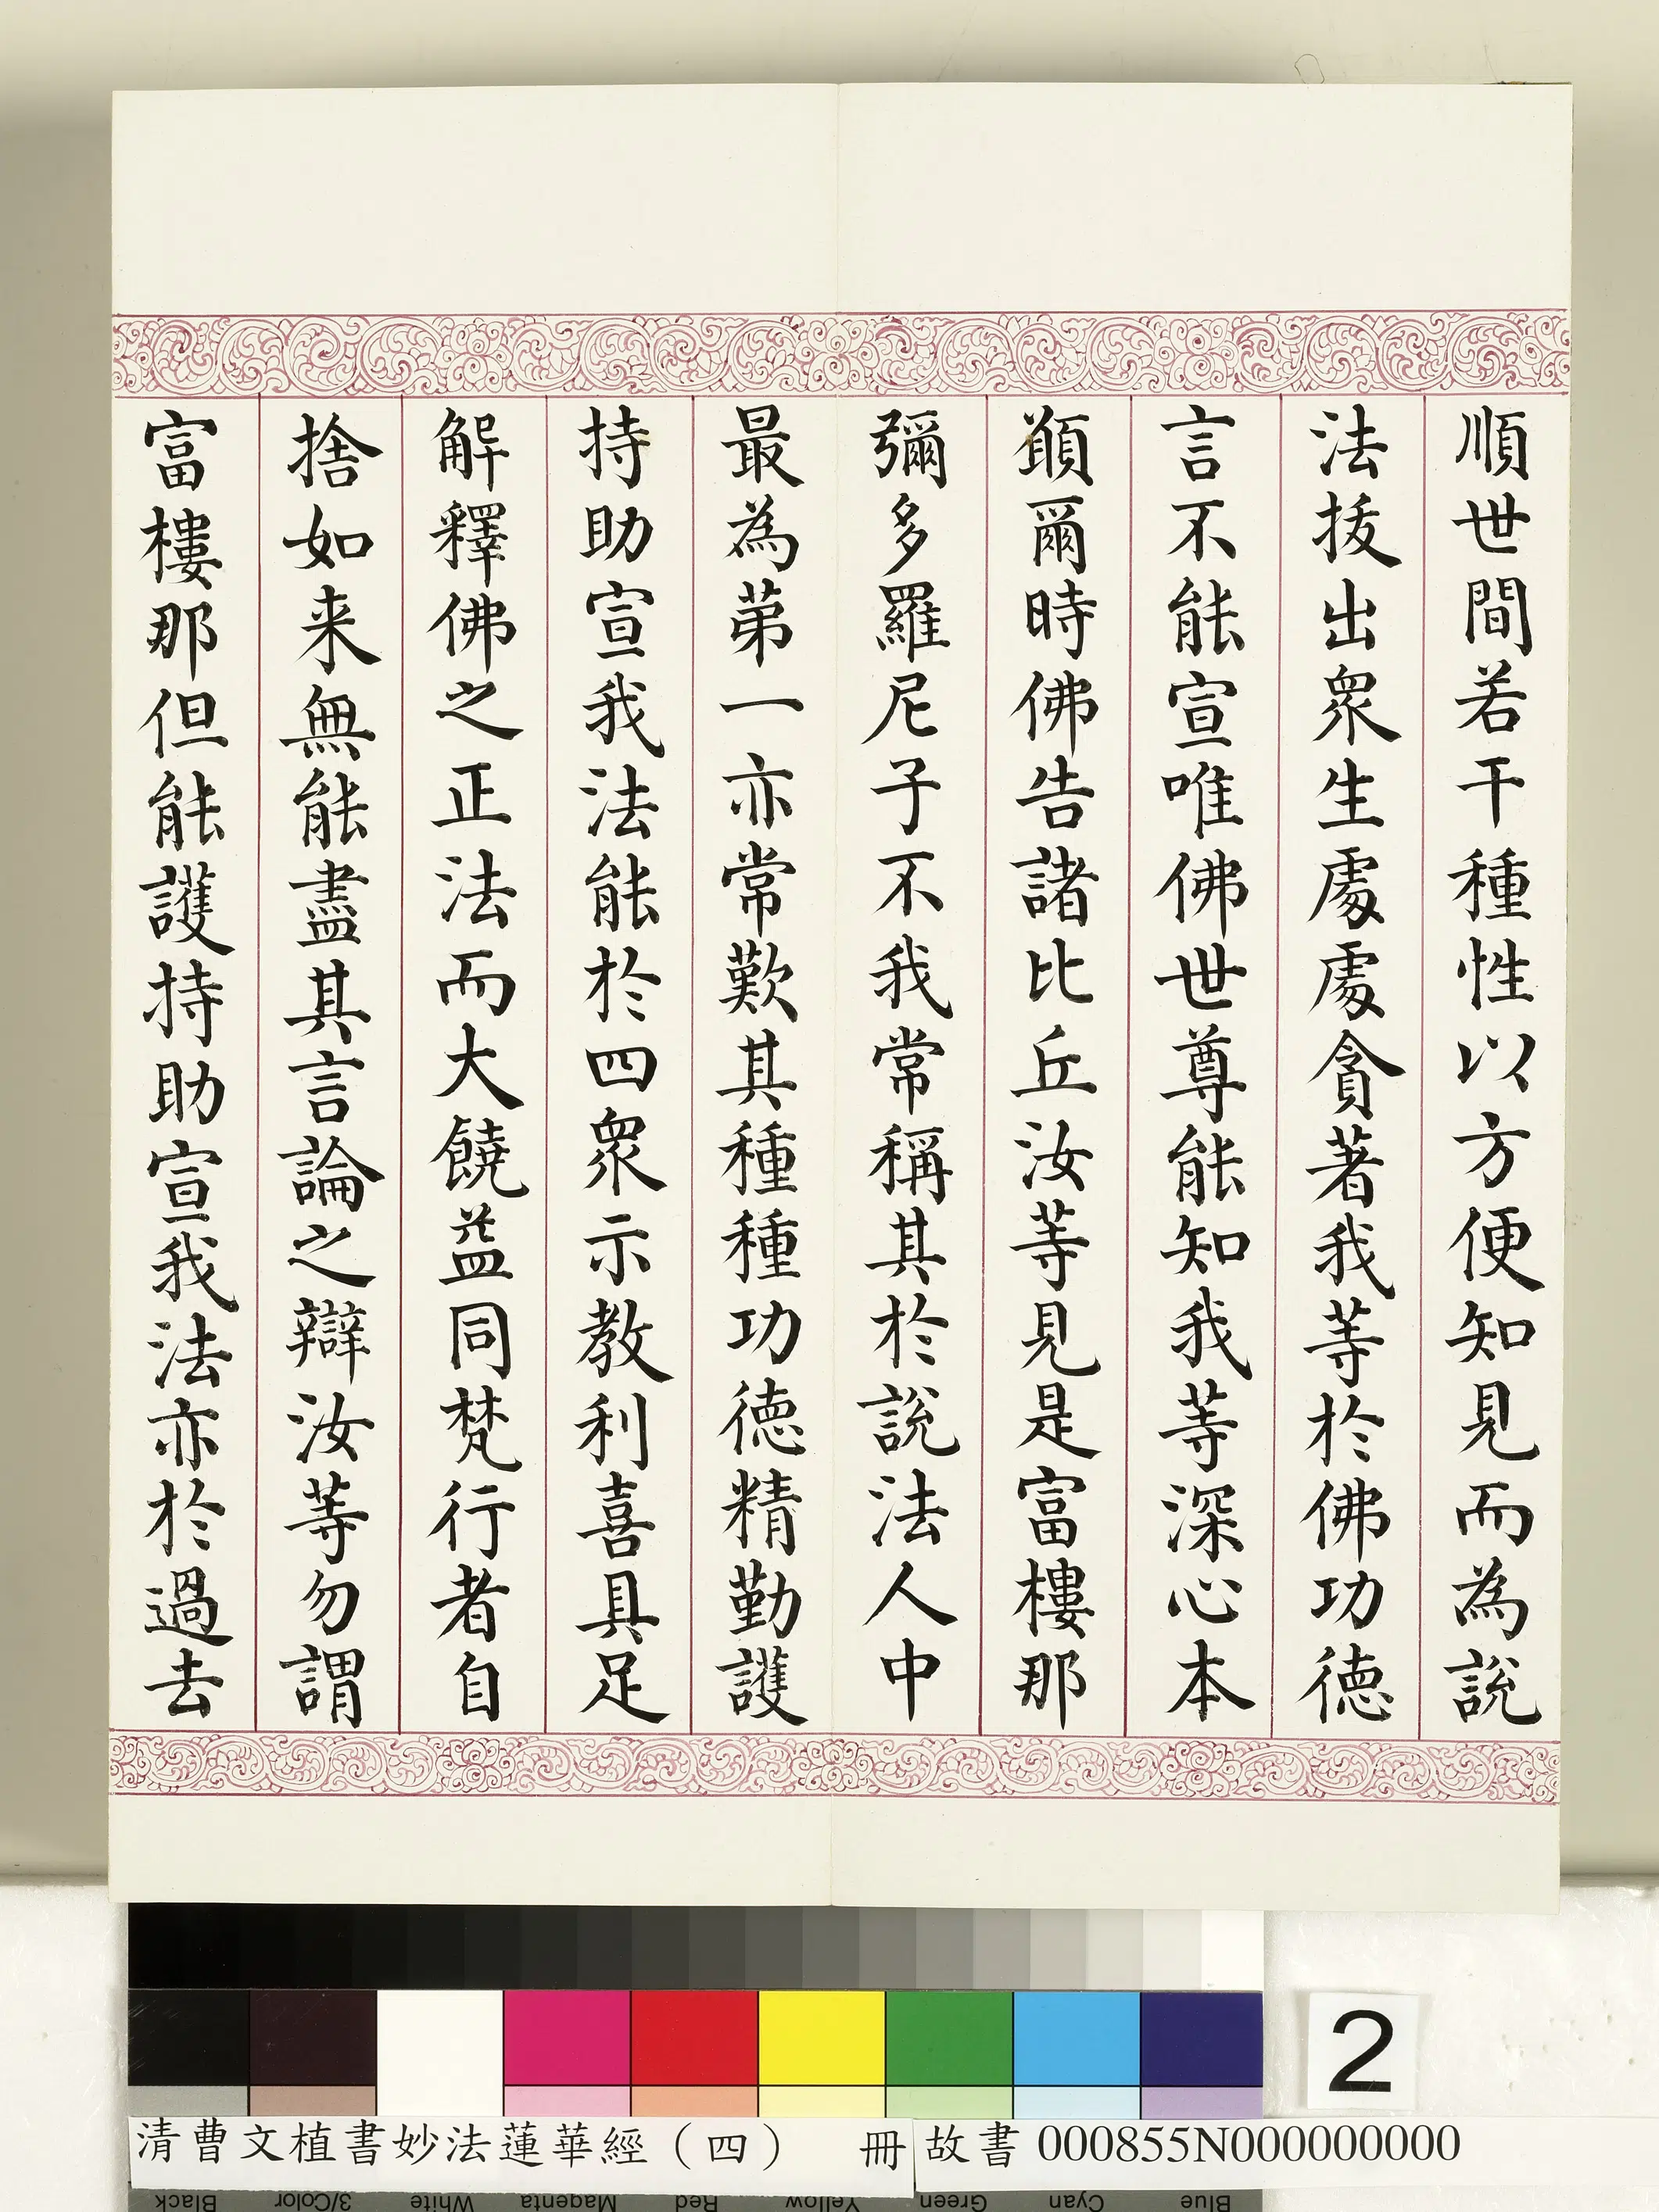 順世間若干種性以方便知見而為說
法拔出眾生處處貪著我等於佛功德
言不能宣唯佛世尊能知我等深心本
願爾時佛告諸比丘汝等見是富樓那
彌多羅尼子不我常稱其於說法人中
最為第一亦常歎其種種功德精勤護
持助宣我法能於四眾示教利喜具足
解釋佛之正法而大饒益同梵行者自
捨如来無能盡其言論之辯汝等勿謂
富樓那但能護持助宣我法亦於過去
2
清曹文植書妙法蓮華經（四） 冊
故書 000855N000000000
Black 3/Color White Magenta Red Yellow Green Cyan Blue